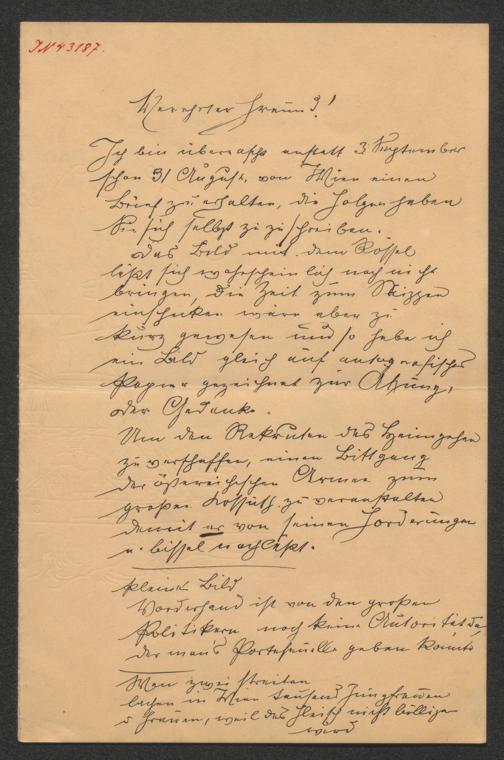 IN 43187.
Verehrter Freund!
Ich bin überrascht anstatt 3 September
schon 31 August, von Wien einen
Brief zu erhalten, die Folgen haben
Sie sich selbst zuzuschreiben.
Das Bild mit dem Kossel
läßt sich wahrscheinlich noch nicht
bringen, die Zeit zum Skizzen
einschicken wäre aber zu
kurz gewesen und so habe ich
ein Bild gleich auf autografisches
Papier gezeichnet zur Ätzung,
der Gedanke.
Um den Rekruten das Heimgehen
zu verschaffen, einen Bittgang
der österreichischen Armee zum
großen Kossuth zu veranstalten
damit er von seinen Forderungen
a bissel nachläßt.
kleines Bild
Vorderhand ist von den großen
Politikern noch keine Autorität da,
der man's Portefeuille geben könnte
Wen zwei streiten
lachen in Wien tausend Jungfrauen
u Frauen, weil das Fleisch nicht billiger
wird